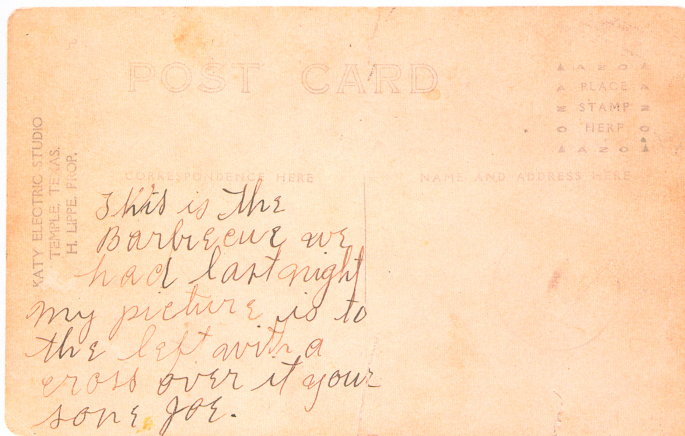 POST CARD
▲ A Z O ▲
PLACE
STAMP
HERE
▲ A Z O ▲
KATY ELECTRIC STUDIO
TEMPLE, TEXAS.
H. LIPPE, PROP.
CORRESPONDENCE HERE
NAME AND ADDRESS HERE
This is the
Barbecue we
had last night
my picture is to
the left with a
cross over it your
sone JOE.